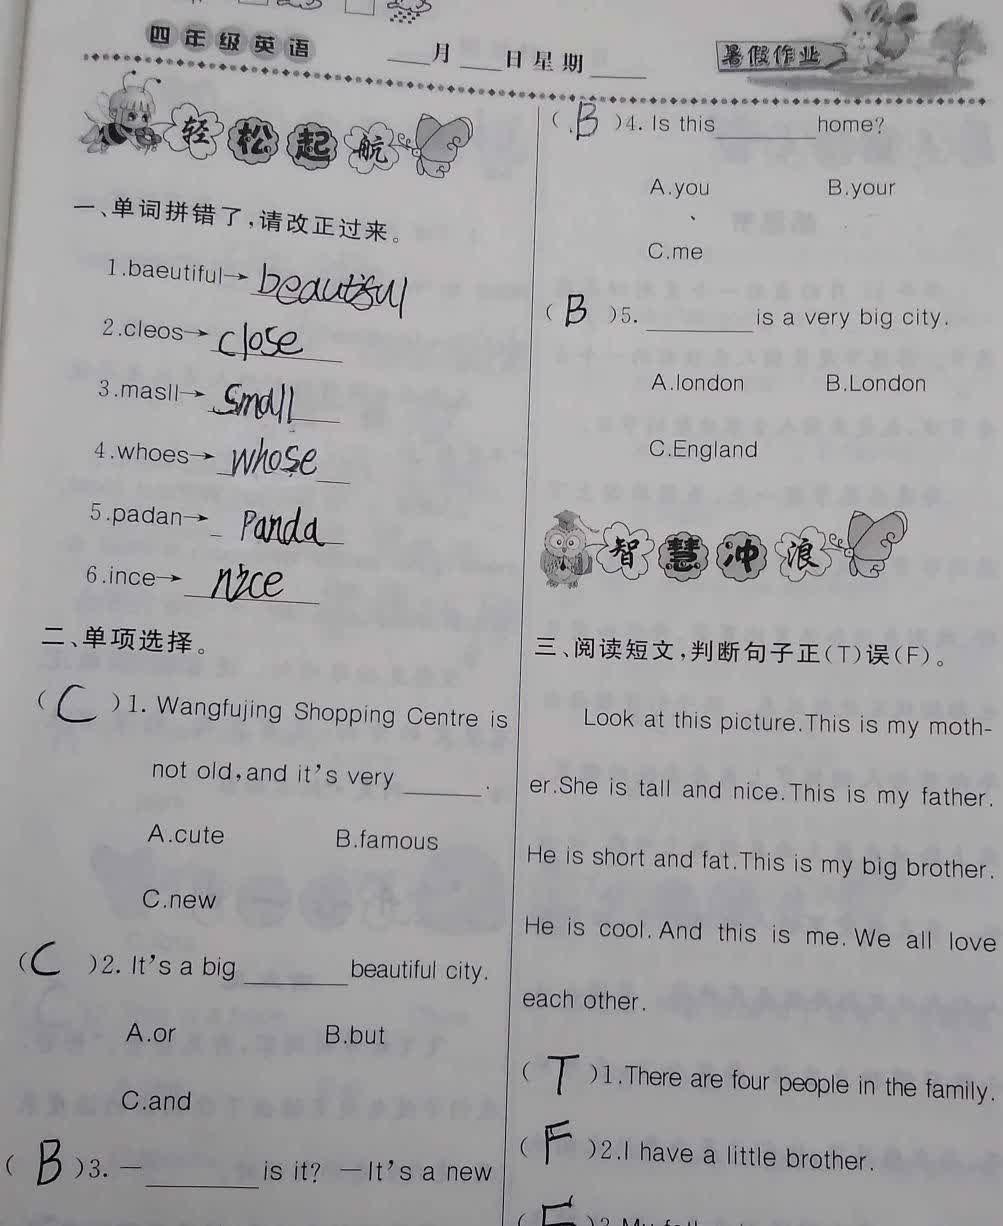 四年级英语
___月___日 星期___
暑假作业
轻松起航
一、单词拼错了,请改正过来。
1.baeutiful→ beautiful
2.cleos→ close
3.masll→ small
4.whoes→ whose
5.padan→ Panda
6.ince→ nice
二、单项选择。
( C )1. Wangfujing Shopping Centre is
not old,and it's very ______.
A.cute B.famous
C.new
( C )2. It's a big ______ beautiful city.
A.or B.but
C.and
( B )3. — ______ is it? —It's a new
( B )4. Is this ______ home?
A.you B.your
C.me
( B )5. ______ is a very big city.
A.london B.London
C.England
智慧冲浪
三、阅读短文,判断句子正(T)误(F)。
Look at this picture.This is my moth-
er.She is tall and nice.This is my father.
He is short and fat.This is my big brother.
He is cool. And this is me. We all love
each other.
( T )1.There are four people in the family.
( F )2.I have a little brother.